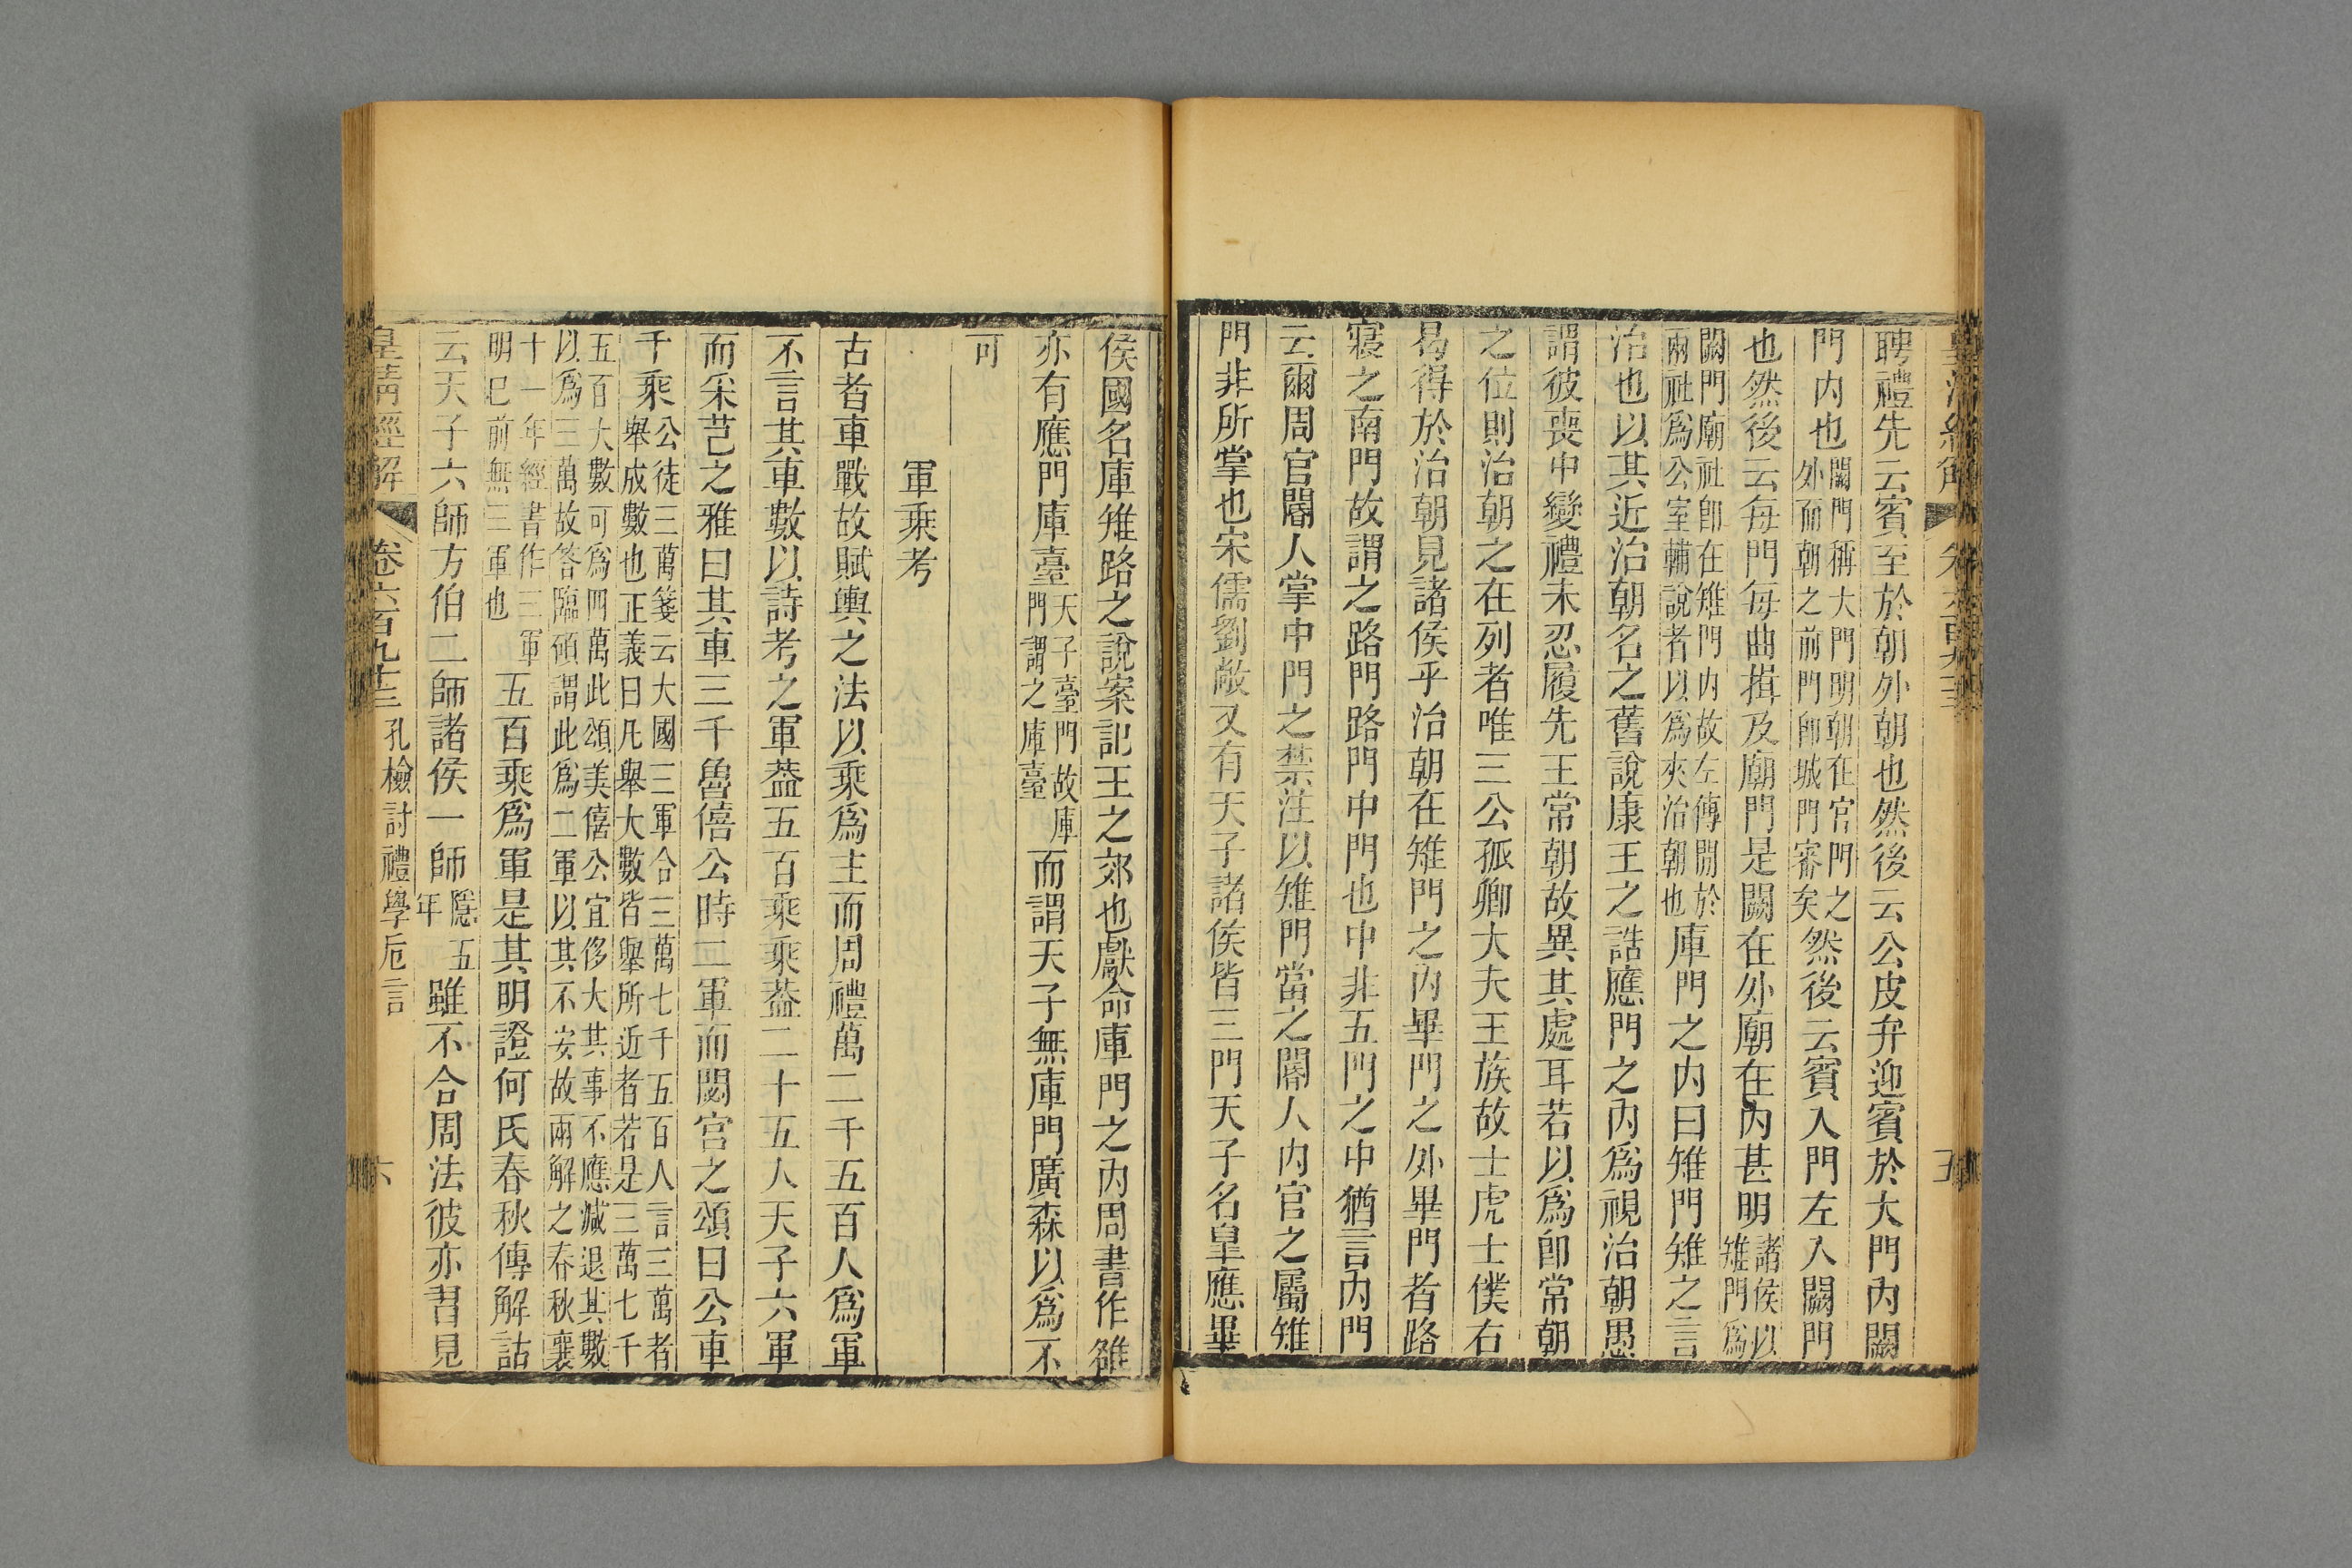 聘禮先云賓至於朝外朝也然後云公皮弁迎賓於大門內闕
門內也闕門稱大門明朝在官門之外而朝之前門卽城門審矣然後云賓入門左入闕門
也然後云每門每曲揖及廟門是闕在外廟在內甚明諸侯以雉門爲
闕門廟社卽在雉門內故左傳閒於兩社爲公室輔說者以爲夾治朝也庫門之內曰雉門雉之言
治也以其近治朝名之舊說康王之誥應門之內爲視治朝愚
謂彼喪中變禮未忍履先王常朝故異其處耳若以爲卽常朝
之位則治朝之在列者唯三公孤卿大夫王族故士虎士僕右
曷得於治朝見諸侯乎治朝在雉門之內畢門之外畢門者路
寢之南門故謂之路門路門中門也中非五門之中猶言內門
云爾周官閽人掌中門之禁注以雉門當之閽人內官之屬雉
門非所掌也宋儒劉敞又有天子諸侯皆三門天子名皐應畢
侯國名庫雉路之說案記王之郊也獻命庫門之內周書作雒
亦有應門庫臺天子臺門故庫門謂之庫臺而謂天子無庫門廣森以爲不
可
軍乘考
古者車戰故賦輿之法以乘爲主而周禮萬二千五百人爲軍
不言其車數以詩考之軍葢五百乘乘葢二十五人天子六軍
而采芑之雅曰其車三千魯僖公時二軍而閟宮之頌曰公車
千乘公徒三萬箋云大國三軍合三萬七千五百人言三萬者舉成數也正義曰凡舉大數皆舉所近者若是三萬七千
五百大數可爲四萬此頌美僖公宜侈大其事不應減退其數以爲三萬故答臨碩謂此爲二軍以其不安故兩解之春秋襄
十一年經書作三軍明已前無三軍也五百乘爲軍是其明證何氏春秋傳解詁
云天子六師方伯二師諸侯一師隱五年雖不合周法彼亦書見
皇淸經解　卷六百九十三　孔檢討禮學卮言　六